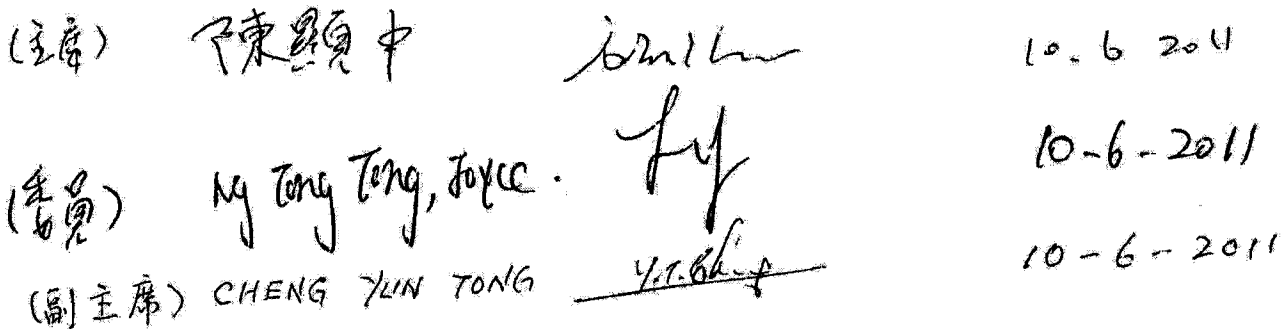 (主席) 陳顯中 10.6 2011
(委員) Ng Tong Tong, Joyce. 10-6-2011
(副主席) CHENG YUN TONG Y.T.Cheng 10-6-2011